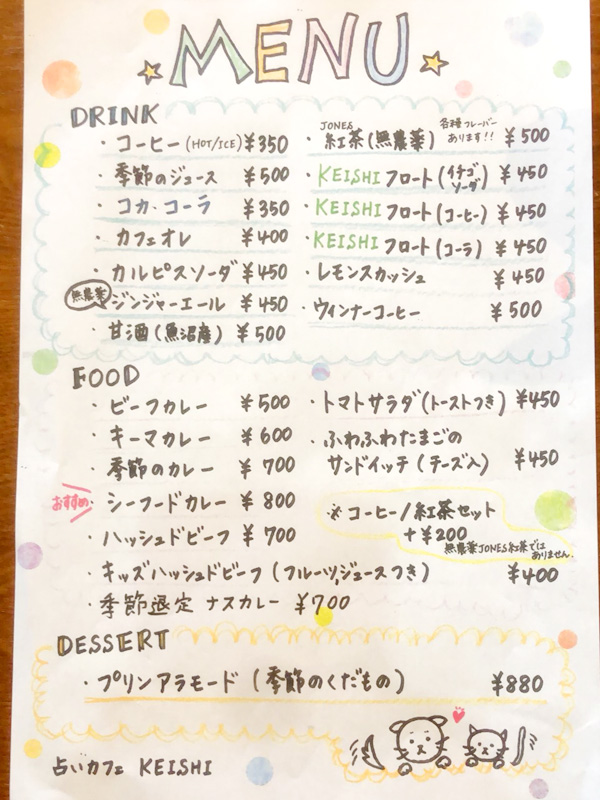 MENU
DRINK
・コーヒー(HOT/ICE) ¥350
・季節のジュース ¥500
・コカ・コーラ ¥350
・カフェオレ ¥400
・カルピスソーダ ¥450
無農薬 ジンジャーエール ¥450
・甘酒(魚沼産) ¥500
JONES
・紅茶(無農薬) 各種フレーバーあります!! ¥500
・KEISHIフロート(イチゴソーダ) ¥450
・KEISHIフロート(コーヒー) ¥450
・KEISHIフロート(コーラ) ¥450
・レモンスカッシュ ¥450
・ウィンナーコーヒー ¥500
FOOD
・ビーフカレー ¥500
・キーマカレー ¥600
・季節のカレー ¥700
おすすめ・シーフードカレー ¥800
・ハッシュドビーフ ¥700
・キッズハッシュドビーフ(フルーツ,ジュースつき) ¥400
・季節限定 ナスカレー ¥700
・トマトサラダ(トーストつき) ¥450
・ふわふわたまごの
サンドイッチ(チーズ入) ¥450
※コーヒー/紅茶セット
+¥200
無農薬JONES紅茶では
ありません.
DESSERT
・プリンアラモード(季節のくだもの) ¥880
占いカフェ KEISHI